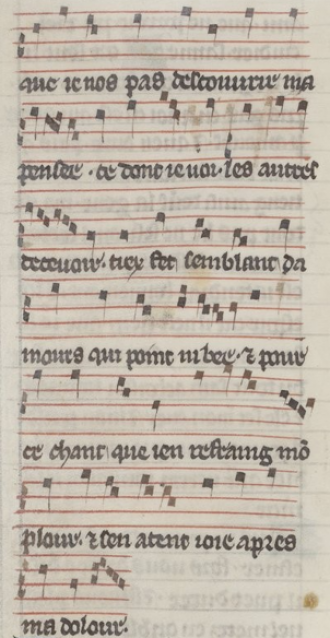 que ie nos pas descouurir ma
pensee . ce dont ie uoi . les autres
deceuoir . tiex fet semblant da
mours qui point ni bee . ⁊ pour
ce chant que ien refraing mō
plour . ⁊ sen atent ioie apres
ma dolour .